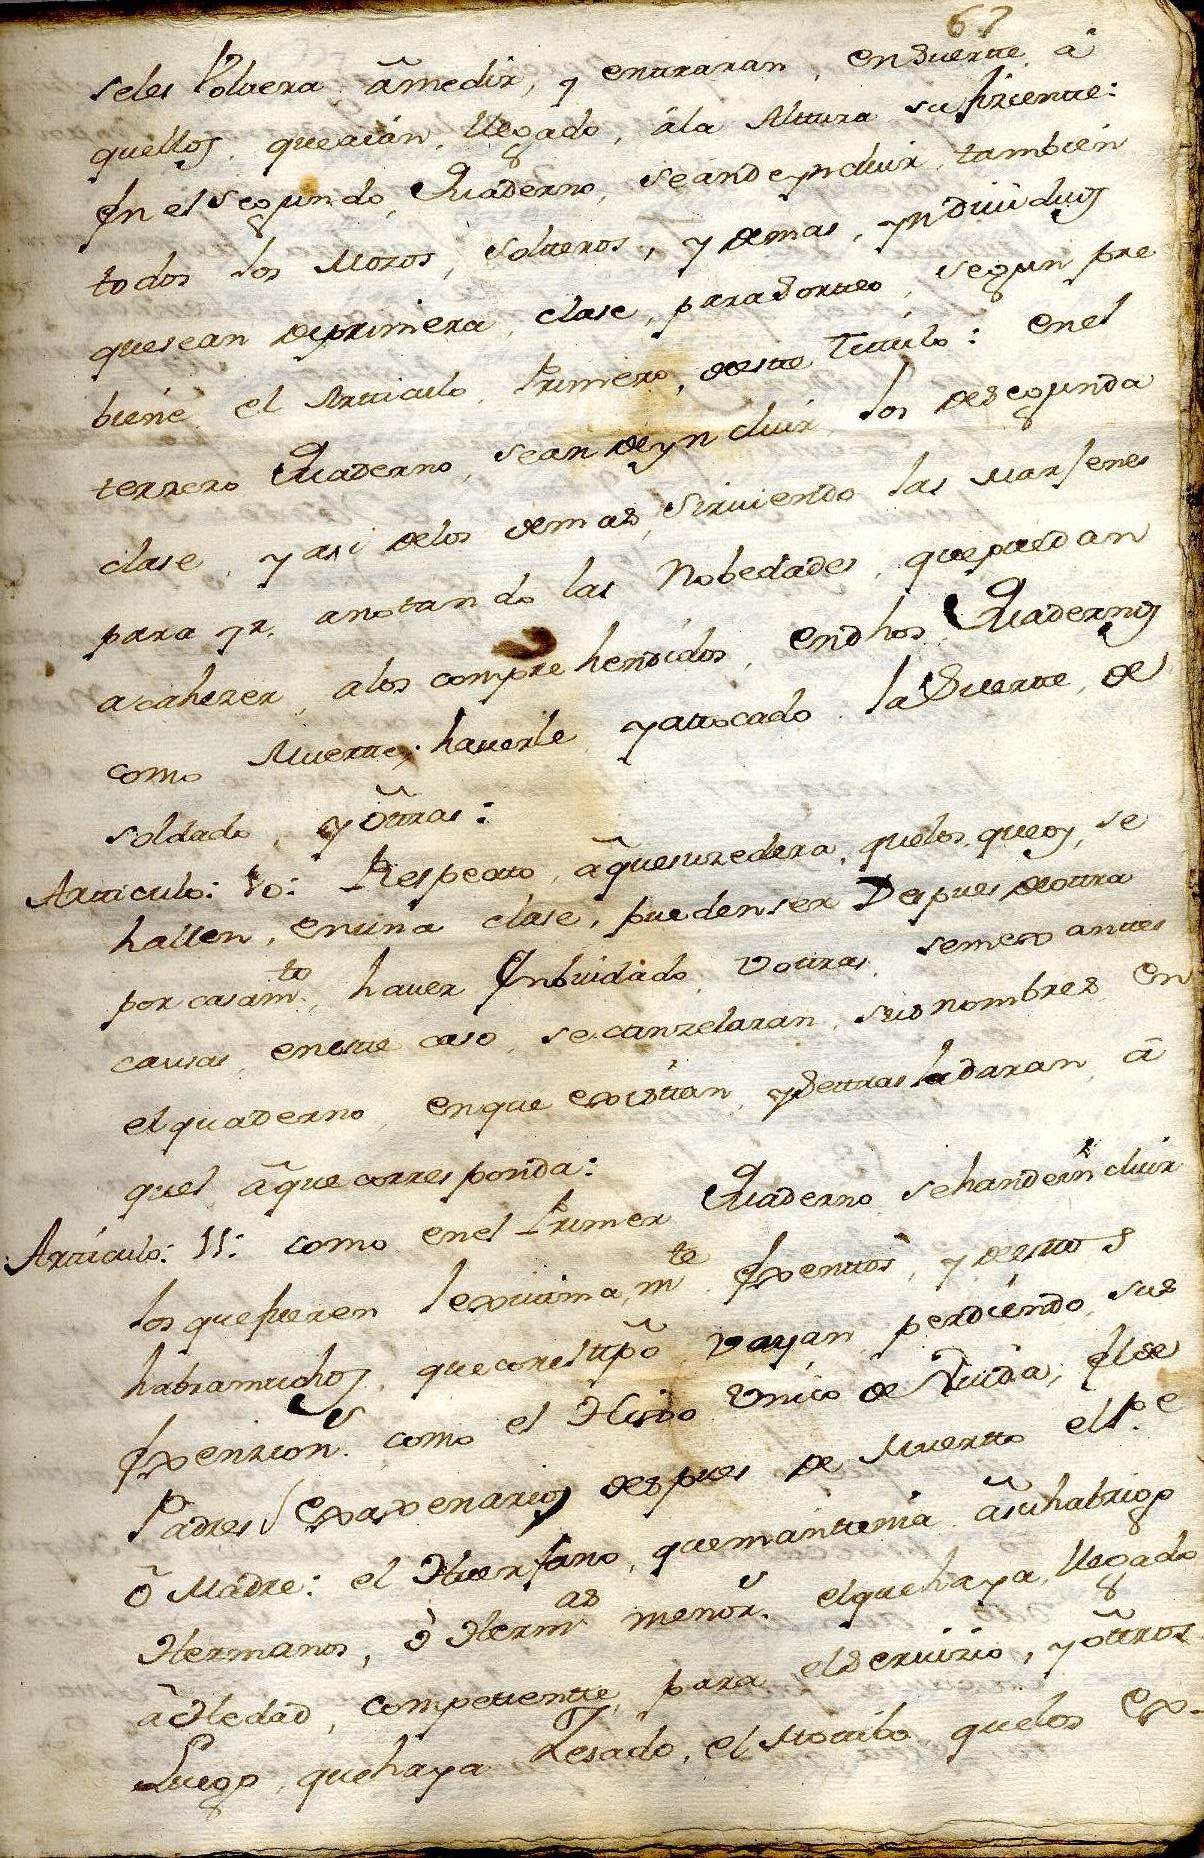 67
seles Volvera âmedir, y entraran, en Suerte, â
quellos, queaián, llegado, âla Altura suficiente:
En el segundo, Quaderno, seandeynCluir, tambien
todos los Mozos, solteros, y demas, yndiuiduos
quesean deprimera, clase, paraSorteo, segun pre
biene el Articulo, Primero, deste Titulo: en el
terzero Quaderno, sean deyn cluir los desegunda
clase, y asi delos demas, Sirviendo las Marjenes
para yr. anotando las Nobedades, quepuedan
acahezer, alos comprehendidos, endhos, Quadernos
como Muerte; hauerle yattocado la Suerte, de
soldado, y ôttras:
Articulo: 10: Respecto, âquesuzedera, quelos, queoy, se
hallen, enuna clase, pueden ser Despues deottra
por casamto, haver Enbiudado, Vottras, semexantes
causas, eneste caso, secanzelaran, sus nombres en
el quaderno, enque existian, ySettrasladaran, â
quel âque corresponda:
Articulo: 11: como enel Primer Quaderno sehandeincluir
los quefueren lexitimamte Exentos, y destos
habramuchos, queconeltipô vayan perdiendo, sus
Exenzion. como el Hijo Vnico de Viuda, El de
Padres Sexaxenarios despues de Muerto el Pe
ô Madre: el Huerfano, quemantenia âsuhabrigo
Hermanos, ô Hermas menor. elquehaya, llegado
âHedad, competente, para elServizio, y ôttros
Luego, quehaya Zesado, el Motibo quelos ex-